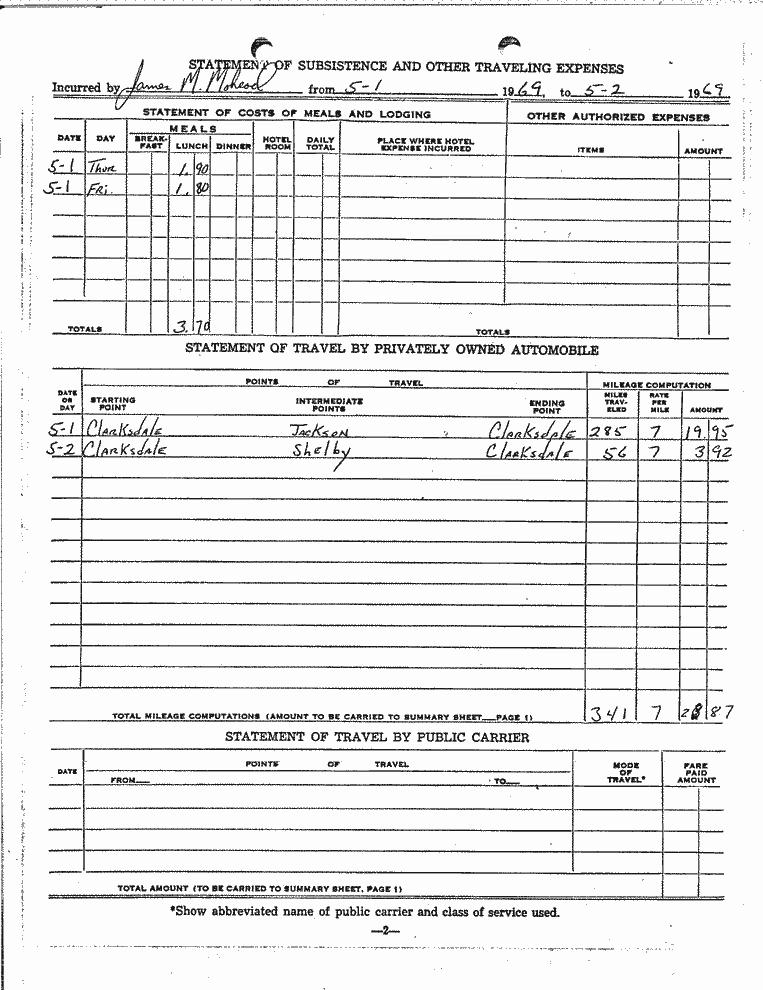 STATEMENT OF SUBSISTENCE AND OTHER TRAVELING EXPENSES
Incurred by James M. Mohead from 5-1 1969, to 5-2 1969
STATEMENT OF COSTS OF MEALS AND LODGING OTHER AUTHORIZED EXPENSES
DATE DAY MEALS BREAK-FAST LUNCH DINNER HOTEL ROOM DAILY TOTAL PLACE WHERE HOTEL EXPENSE INCURRED ITEMS AMOUNT
5-1 Thur 1.90
5-1 Fri. 1.80
TOTALS 3.70 TOTALS
STATEMENT OF TRAVEL BY PRIVATELY OWNED AUTOMOBILE
DATE OR DAY POINTS OF TRAVEL MILEAGE COMPUTATION
STARTING POINT INTERMEDIATE POINTS ENDING POINT MILES TRAV-ELED RATE PER MILE AMOUNT
5-1 Clarksdale Jackson Clarksdale 285 7 19.95
5-2 Clarksdale Shelby Clarksdale 56 7 3 92
TOTAL MILEAGE COMPUTATIONS (AMOUNT TO BE CARRIED TO SUMMARY SHEET—PAGE 1) 341 7 87
STATEMENT OF TRAVEL BY PUBLIC CARRIER
DATE POINTS OF TRAVEL MODE OF TRAVEL* FARE PAID AMOUNT
FROM— TO—
TOTAL AMOUNT (TO BE CARRIED TO SUMMARY SHEET, PAGE 1)
*Show abbreviated name of public carrier and class of service used.
—2—